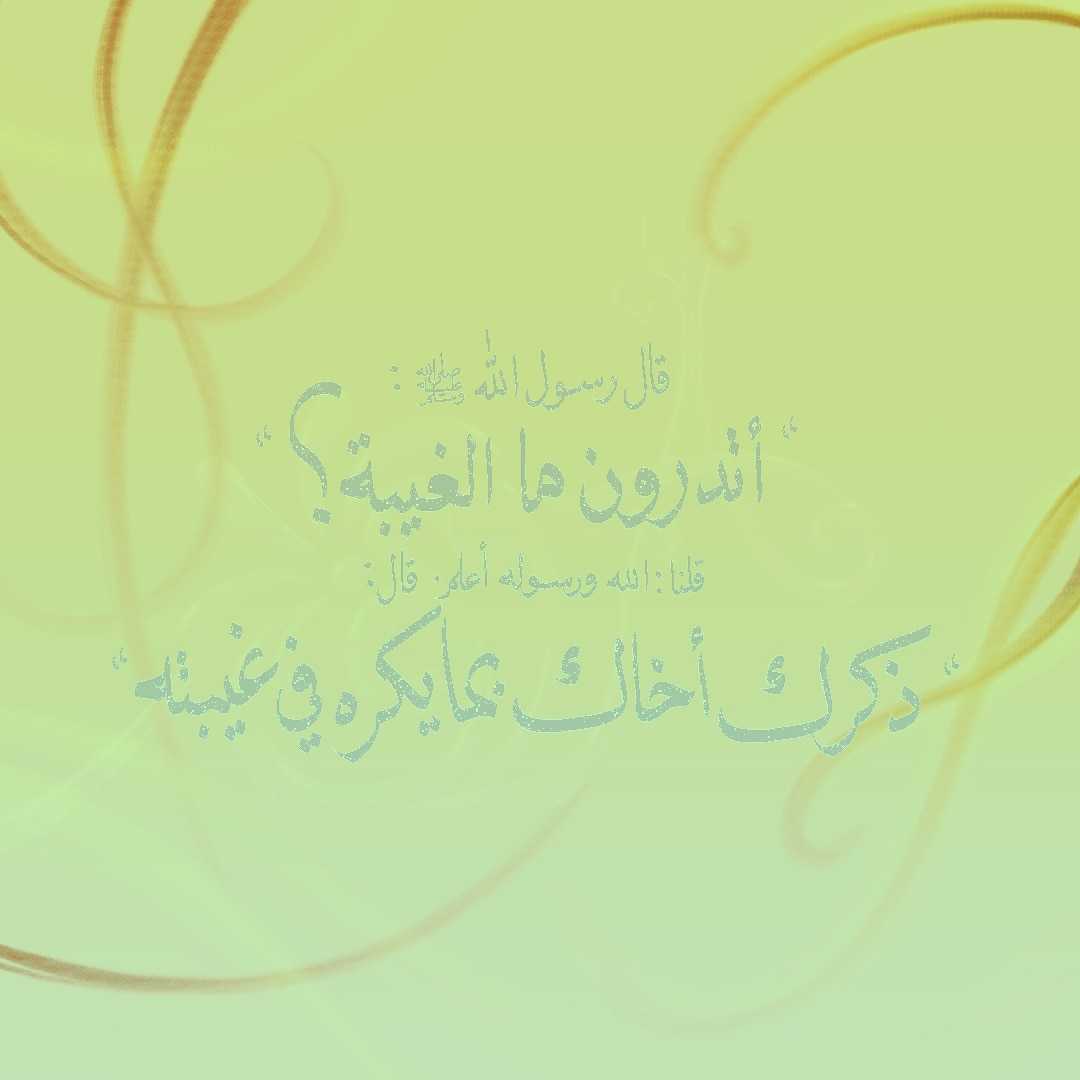 قال رسول الله ﷺ :
“ أتدرون ما الغيبة؟ “
قلنا : الله ورسوله أعلم. قال:
“ ذكرك أخاك بما يكره في غيبته “